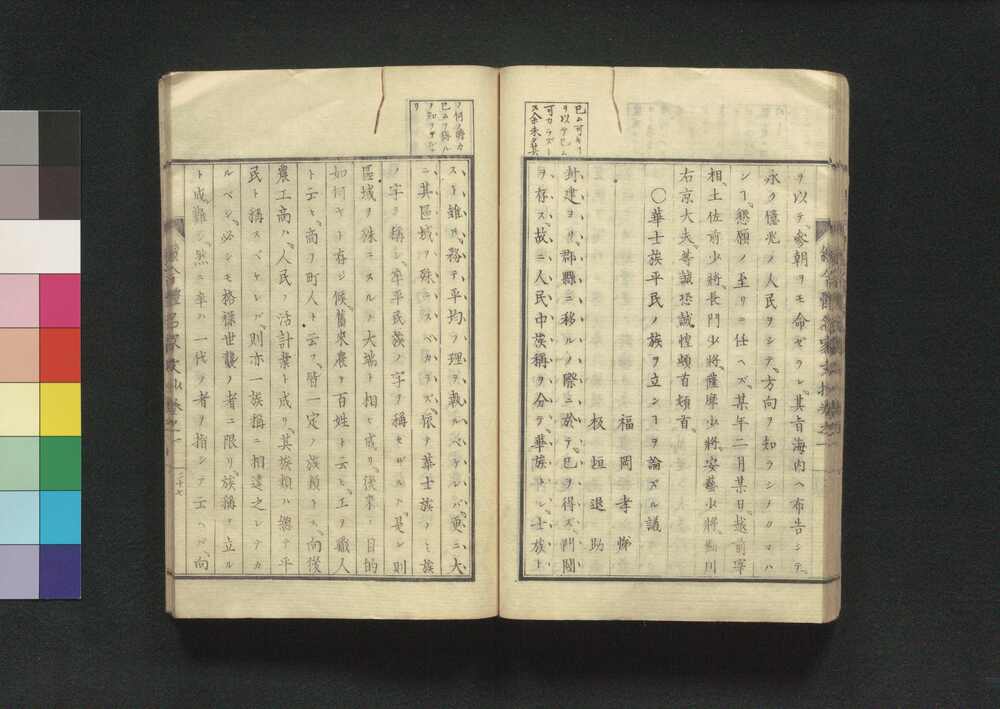 ヲ以テ參朝ヲモ命ゼラレ其旨海内ヘ布告シテ
永ク億兆ノ人民ヲシテ方向ヲ知ラシメタマハ
ンヿ懇願ノ至リニ任ヘズ某年二月某日越前宰
相土佐前少將長門少將薩摩少將安藝少將細川
右京大夫等誠恐誠惶頓首頓首
〇華士族平民ノ族ヲ立ンヿヲ論ズル議
福岡孝悌
板垣退助
封建ヨリ郡縣ニ移ルノ際ニ於テ已ヲ得ズ門閥
ヲ存ス故ニ人民中族稱ヲ分テ華族トシ士族ト
スト雖𪜈務テ平均ノ理ヲ執ルベケレバ更ニ大
ニ其區域ヲ殊ニスベカラズ擬テ華士族ノミ族
ノ字ヲ稱シ率平民族ノ字ヲ稱セザルハ是レ則
區域ヲ殊ニスルノ大端ト相ヒ成リ後來ノ目的
如何ヤト存ジ候舊來農ヲ百姓ト云ヒ工ヲ職人
ト云ヒ商ヲ町人ト云フ皆一定ノ族類トス向後
農工商ハ人民ノ活計業ト成リ其族類ハ總テ平
民ト稱スベケレバ則亦一族稱ニ相違之レナカ
ルベシ必シモ格祿世襲ノ者ニ限リ族稱ヲ立ル
ト成難シ然ニ率ハ一代ノ者ヲ指シテ云ヘバ向